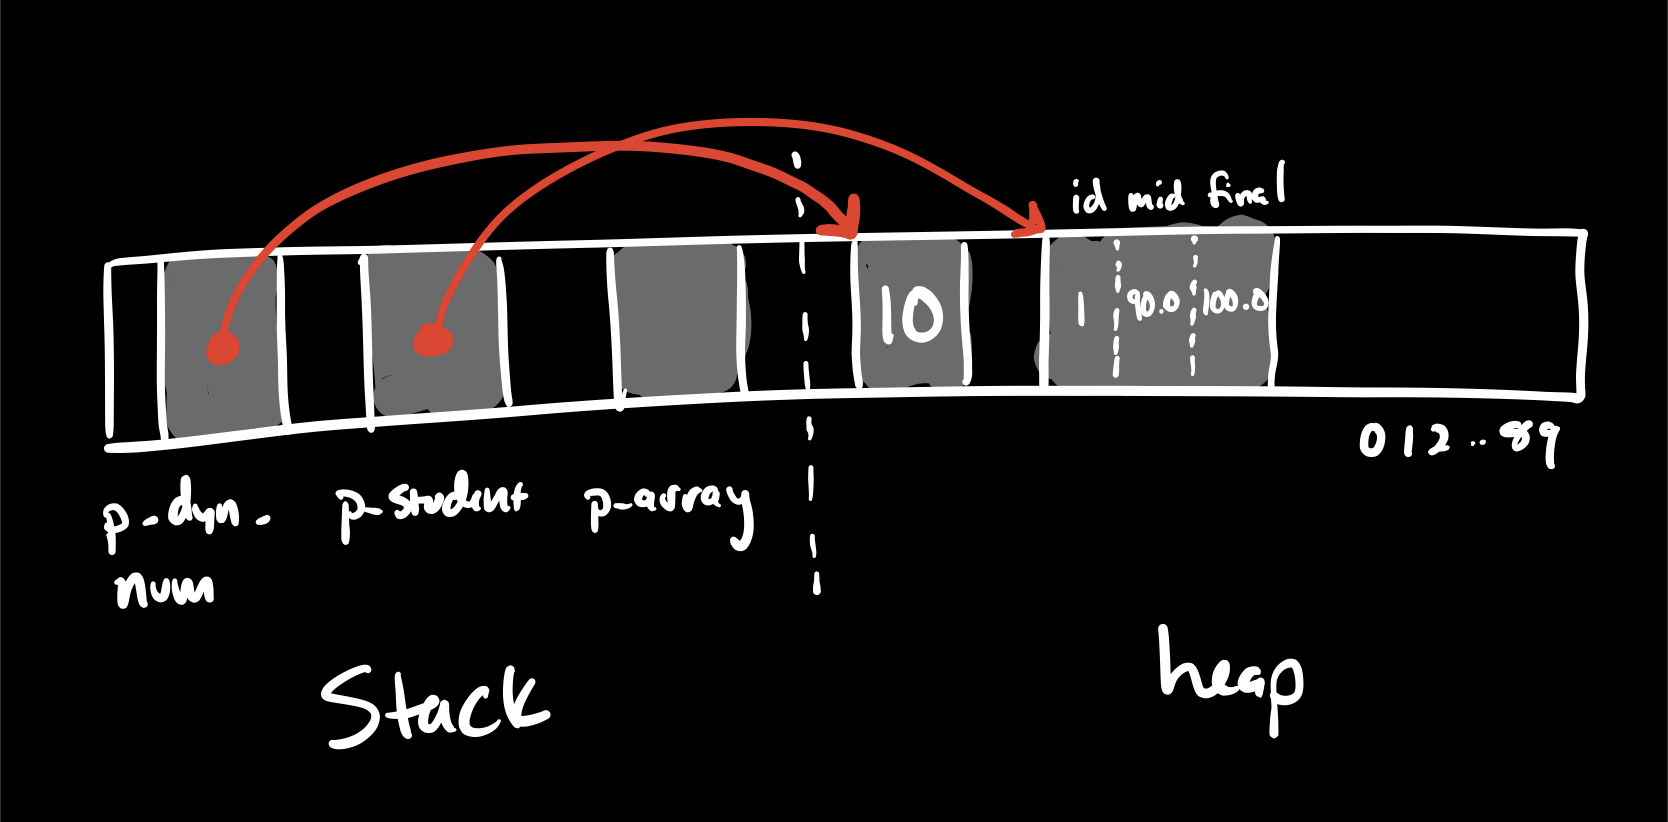 id mid final
10
1 90.0 100.0
0 1 2 .. 8 9
p_dyn_
num
p_student
p_array
Stack
heap